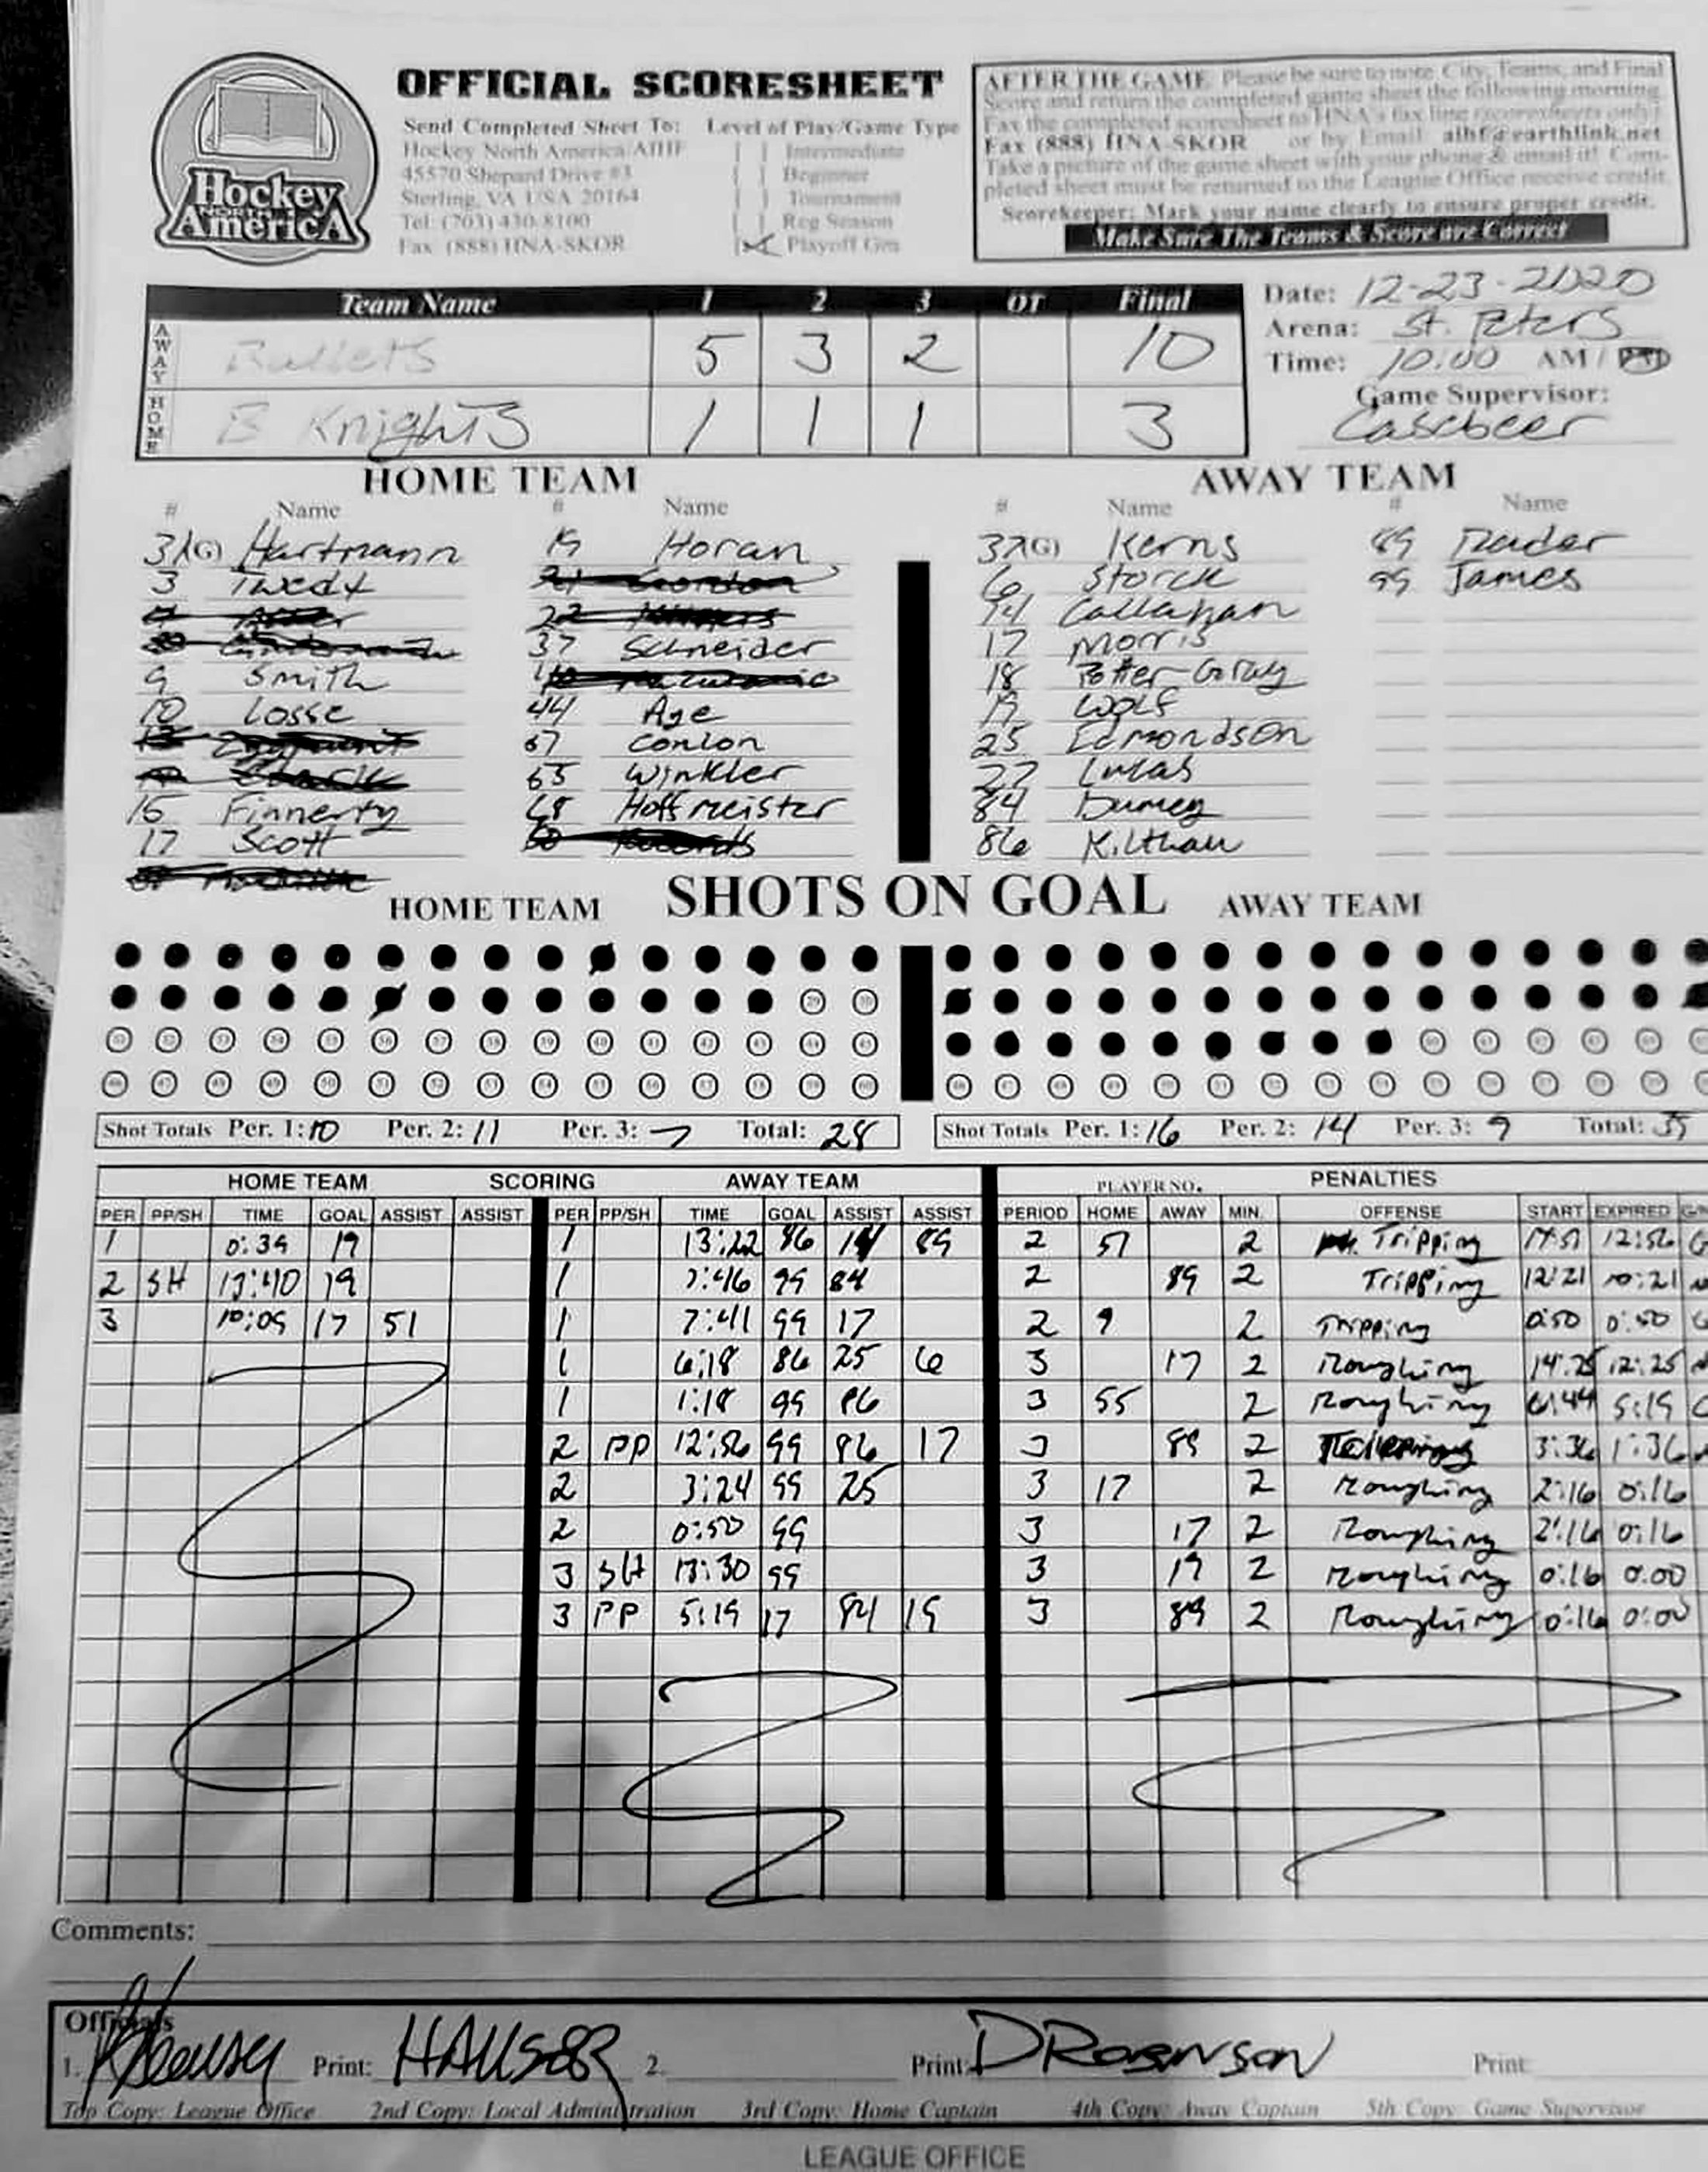 OFFICIAL SCORESHEET
Hockey
NORTH
AmericA
Send Completed Sheet To:
Hockey North America/AIHF
45570 Shepard Drive #3
Sterling, VA USA 20164
Tel: (703) 430-8100
Fax (888) HNA-SKOR
Level of Play/Game Type
[ ] Intermediate
[ ] Beginner
[ ] Tournament
[ ] Reg Season
[X] Playoff Gm
AFTER THE GAME Please be sure to note City, Teams, and Final
Score and return the completed game sheet the following morning.
Fax the completed scoresheet to HNA's fax line (scoresheets only)
Fax (888) HNA-SKOR or by Email: aihf@earthlink.net
Take a picture of the game sheet with your phone & email it! Com-
pleted sheet must be returned to the League Office receive credit.
Scorekeeper: Mark your name clearly to ensure proper credit.
Make Sure The Teams & Score are Correct
Team Name 1 2 3 OT Final
AWAY Bullets 5 3 2 10
HOME B Knights 1 1 1 3
Date: 12-23-2020
Arena: St. Peters
Time: 10:00 AM / PM
Game Supervisor:
Casebeer
HOME TEAM
# Name # Name
31(G) Hartmann 19 Horan
3 Twedt
37 Schneider
9 Smith
10 Losse 44 Age
Conlon
Winkler
15 Finnerty 68 Hoffmeister
17 Scott
AWAY TEAM
# Name # Name
37(G) Kerns 89 Rader
6 Storck 99 James
14 Callahan
17 Morris
18 Potter-Gray
19 Wolf
25 Edmondson
27 Lucas
84
86 Kilthau
HOME TEAM SHOTS ON GOAL AWAY TEAM
Shot Totals Per. 1: 10 Per. 2: 11 Per. 3: 7 Total: 28
Shot Totals Per. 1: 16 Per. 2: 14 Per. 3: 9 Total:
HOME TEAM SCORING AWAY TEAM
PER PP/SH TIME GOAL ASSIST ASSIST PER PP/SH TIME GOAL ASSIST ASSIST
1 0:39 19 1 13:22 86 89
2 SH 13:40 19 1 7:46 99 84
3 10:09 17 51 1 7:41 99 17
1 6:18 86 25 6
1 1:18 99 86
2 PP 12:56 99 86 17
2 3:24 99 25
2 0:50 99
3 SH 13:30 99
3 PP 5:19 17 84 19
PLAYER NO. PENALTIES
PERIOD HOME AWAY MIN. OFFENSE START EXPIRED
2 51 2 Tripping 12:56
2 89 2 Tripping 12:21 10:21
2 9 2 Tripping 0:50 0:50
3 17 2 Roughing 14:25 12:25
3 55 2 Roughing 6:44 5:19
3 89 2 3:36 1:36
3 17 2 Roughing 2:16 0:16
3 17 2 Roughing 2:16 0:16
3 19 2 Roughing 0:16 0:00
3 89 2 Roughing 0:16 0:00
Comments:
Officials
1. Print: HAUSER 2. Print: D ROBINSON Print:
Top Copy: League Office 2nd Copy: Local Administration 3rd Copy: Home Captain 4th Copy: Away Captain 5th Copy: Game Supervisor
LEAGUE OFFICE